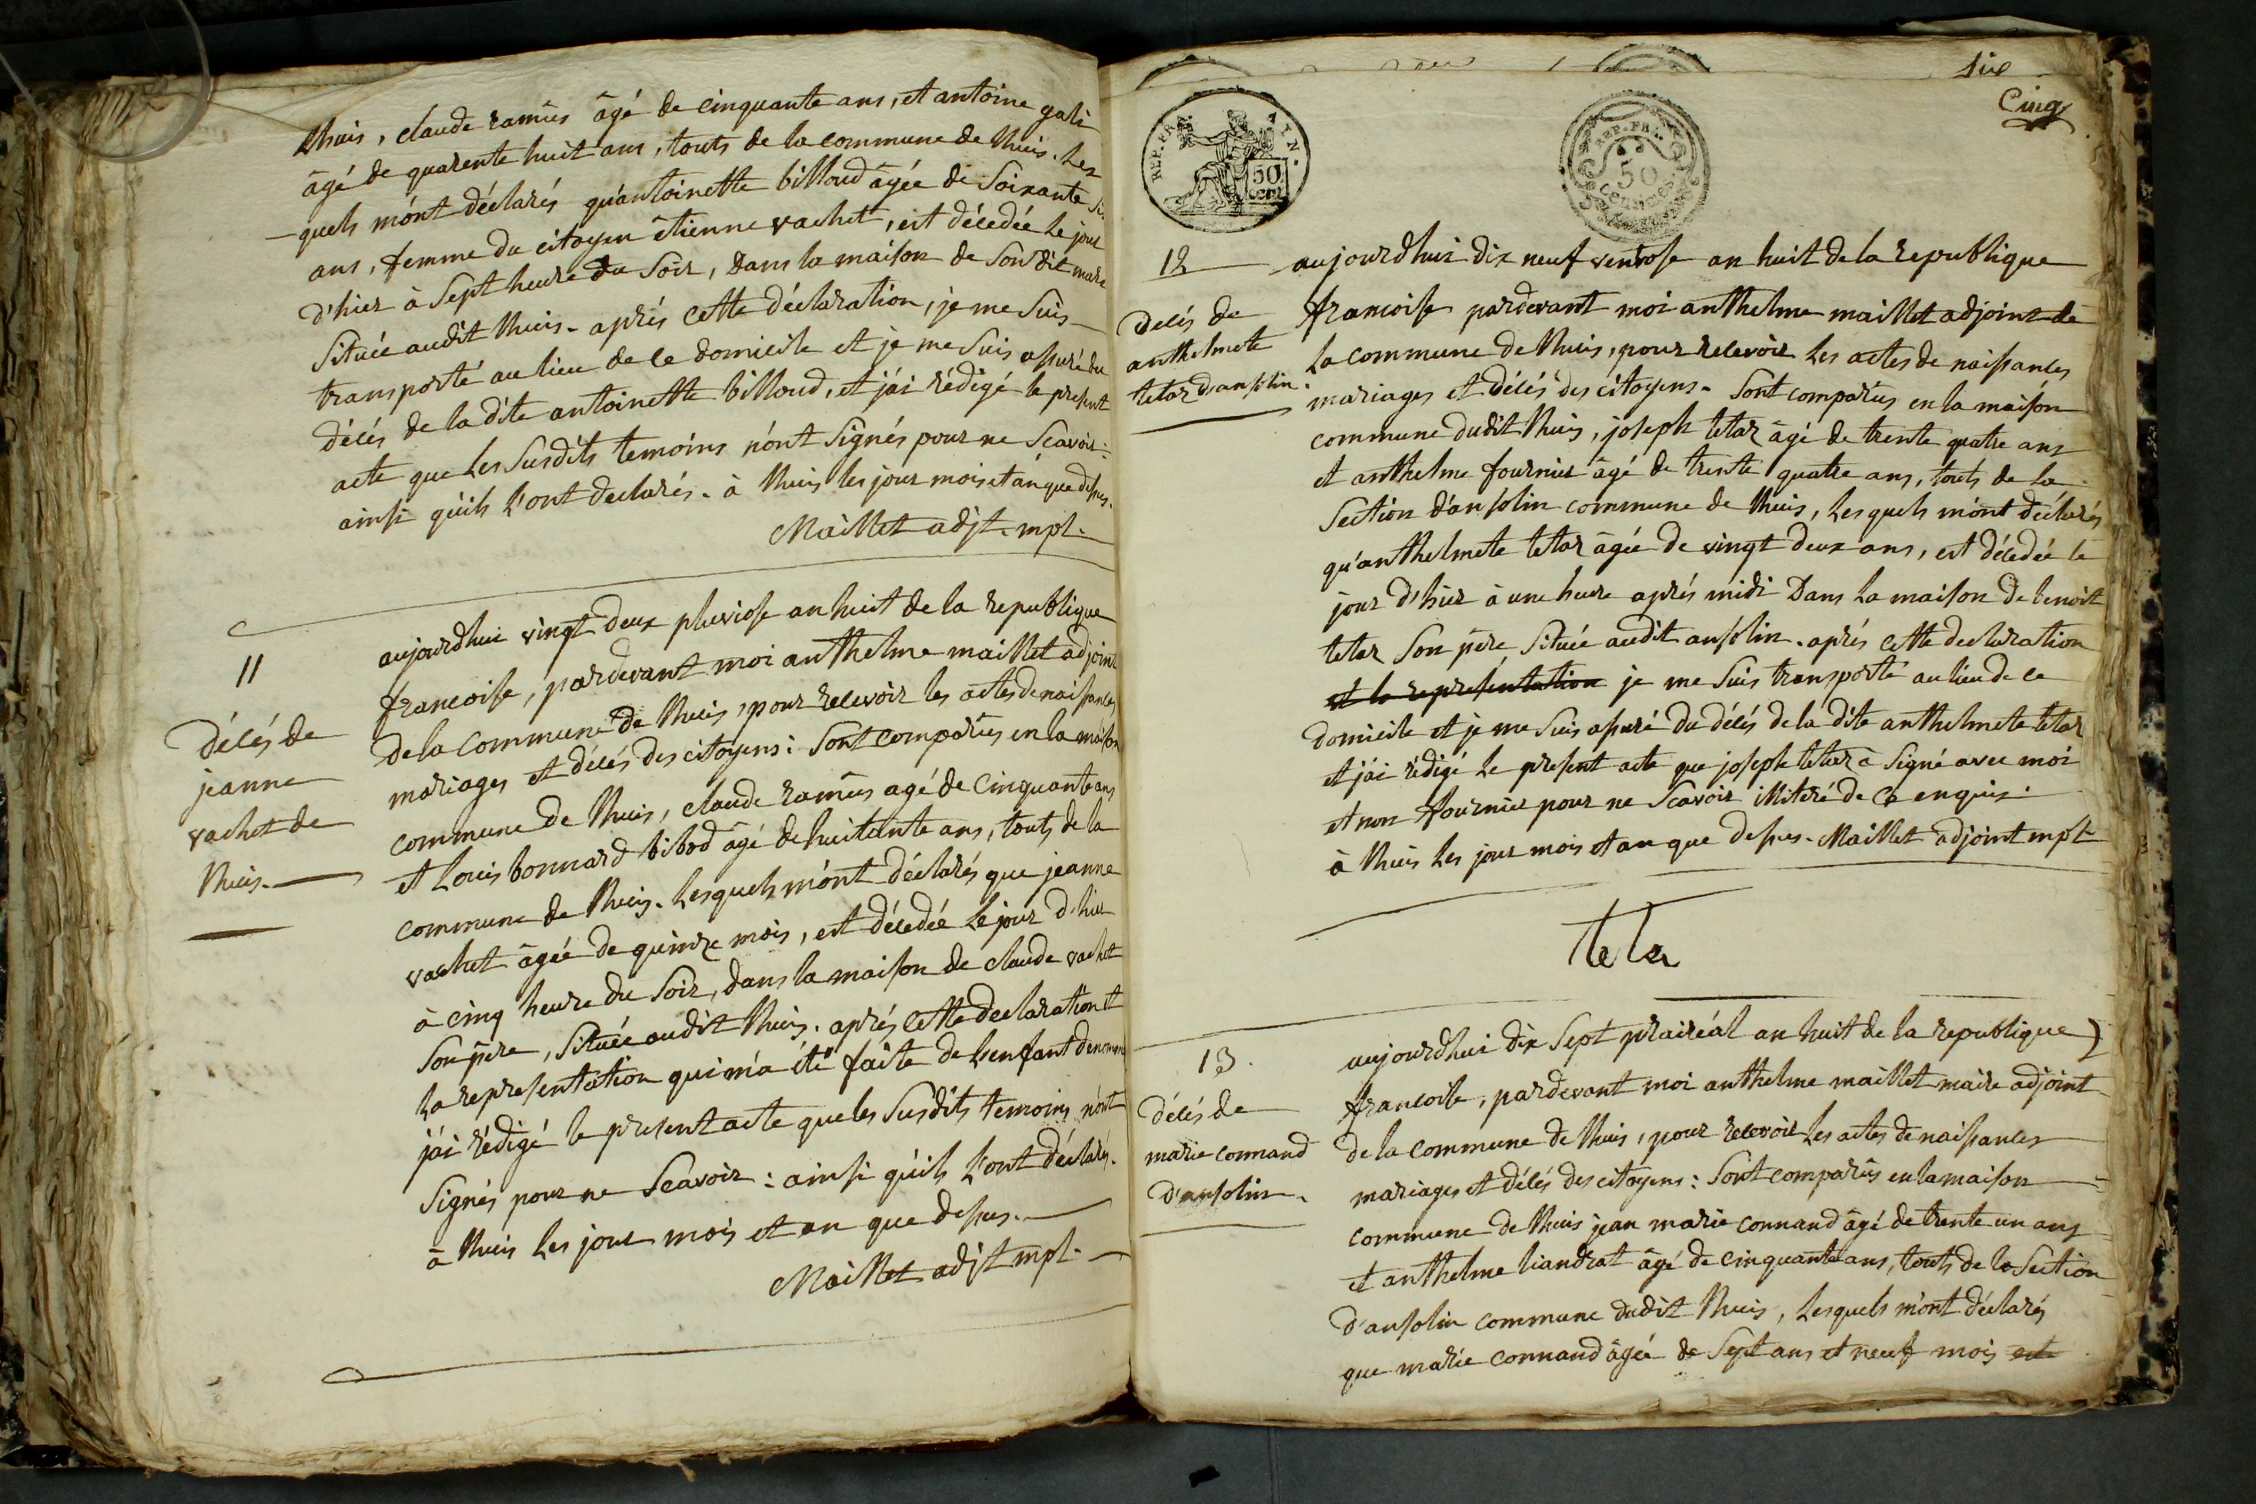 Lhuis, claude ramüs âgé de cinquante ans, et antoine gali
âgé de quarente huit ans, touts de la commune de Lhuis. Les
quels m'ont déclarés qu'antoinette billoud âgée de Soixante Si
ans, femme du citoyen étienne vachet, est décedée le jour
d'hier à Sept heure du Soir, Dans la maison de Son dit mari
Située audit Lhuis. aprés cette déclaration, je me Suis
transporté au lieu de ce domicile et je me Suis assuré du
décés de la dite antoinette billoud, et j'ai rédigé le present
acte que les Susdits temoins n'ont Signés pour ne Scavoir:
ainsi qu'ils l'ont declarés. à Lhuis les jour mois et an que dessus.
Maillet adjt. mpl.
11
décés de
jeanne
vachet de
Lhuis.
aujourdhui vingt deux pluviose an huit de la republique
francoise, pardevant moi anthelme maillet adjoint
de la commune de Lhuis, pour recevoir les actes de naissances
mariages et décés des citoyens: Sont comparus en la maison
commune de Lhuis, claude ramüs agé de cinquante ans
et Louis bonnard bibod âgé de huitante ans, touts de la
commune de Lhuis. Lesquels m'ont déclarés que jeanne
vachet âgée de quinze mois, est décedée le jour d'hier
à cinq heure du Soir, dans la maison de claude vachet
Son pere, Située audit Lhuis. aprés cette declaration et
la representation qui m'a été faite de l'enfant denommé
j'ai rédigé le present acte que les Susdits temoins n'ont
Signés pour ne Scavoir: ainsi qu'ils l'ont déclarés.
à Lhuis les jour mois et an que dessus.
Maillet adjt mpl.
Six
Cinq
REP. FRA. 50 CENT.
REP. FRA. 50 Centimes
12
décés de
anthelmete
tetaz d'ansolin.
aujourdhui dix neuf ventose an huit de la republique
francoise pardevant moi anthelme maillet adjoint de
la commune de Lhuis, pour recevoir les actes de naissances
mariages et décés des citoyens. Sont comparus en la maison
commune dudit Lhuis, joseph tetaz âgé de trente quatre ans
et anthelme fournier âgé de trente quatre ans, touts de la
Section d'ansolin commune de Lhuis, Lesquels m'ont déclarés
qu'anthelmete tetaz âgée de vingt deux ans, est décedée le
jour d'hier à une heure aprés midi Dans la maison de benoit
tetaz Son pere Située audit ansolin. aprés cette declaration
et la representation je me Suis transporté au lieu de ce
domicile et je me Suis assuré du décés de la dite anthelmete tetaz
et j'ai rédigé le present acte que joseph tetaz a Signé avec moi
et non fournier pour ne Scavoir illiteré de ce enquis.
à Lhuis les jour mois et an que dessus. Maillet adjoint mpl.
teta
13.
décés de
marie connand
d'ansolin.
aujourdhui dix Sept prairéal an huit de la republique
francoise, pardevant moi anthelme maillet maire adjoint
de la commune de Lhuis, pour recevoir les actes de naissances
mariages et décés des citoyens: Sont comparus en la maison
commune de Lhuis jean marie connand âgé de trente un ans
et anthelme liandrat âgé de cinquante ans, touts de la Section
d'ansolin commune dudit Lhuis, Lesquels m'ont déclarés
que marie connand âgée de Sept ans et neuf mois est